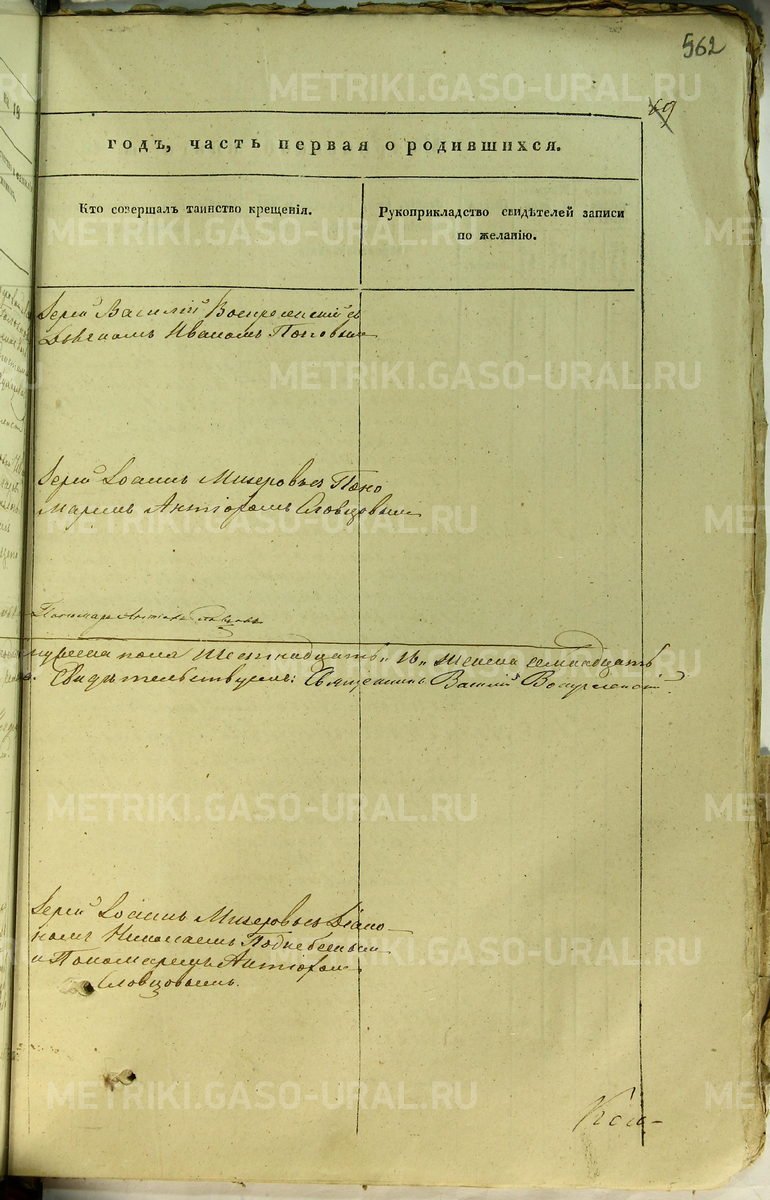 562
69
годъ, часть первая о родившихся.
Кто совершалъ таинство крещенія.
Рукоприкладство свидѣтелей записи
по желанію.
Іерей Василій Воскресенскій съ
Діакономъ Иваномъ Поповымъ
Іерей Іоаннъ Мизеровъ съ Поно
маремъ Антіохомъ Словцовымъ
Пономарь Антіохъ Словцовъ
мужеска пола шестнадцать „16„ женска семнадцать
Свидѣтельствуемъ: Священникъ Василій Воскресенскій.
Іерей Іоаннъ Мизеровъ съ Діако-
номъ Николаемъ
и Пономаремъ Антіохомъ
Словцовымъ.
METRIKI.GASO-URAL.RU